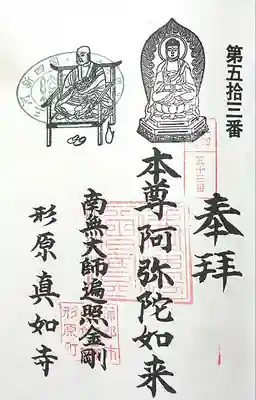 第五拾三番
奉拝
本尊阿弥陀如来
南無大師遍照金剛
形原真如寺
五十三番
蒲郡市
形原町